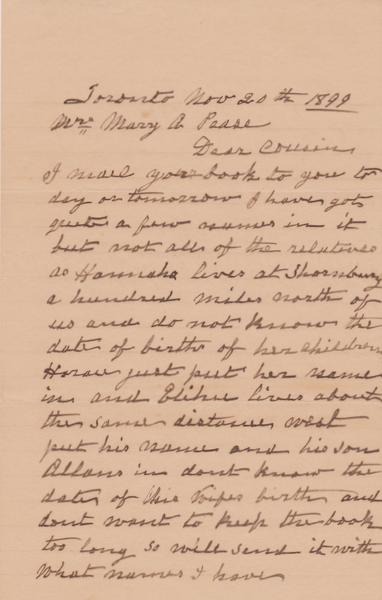 Toronto Nov 20th 1899
Mrs Mary A Pease
Dear Cousin
I mail your book to you to
day or tomorrow I have got
quite a few names in it
but not all of the relatives
as Hannaha lives at Thornbury
a hundred miles north of
us and do not know the
date of birth of her children
Horace just put her name
in and Elihu lives about
the same distance west
put his name and his son
Allans in dont know the
date of his wifes birth and
dont want to keep the book
too long so will send it with
what names I have